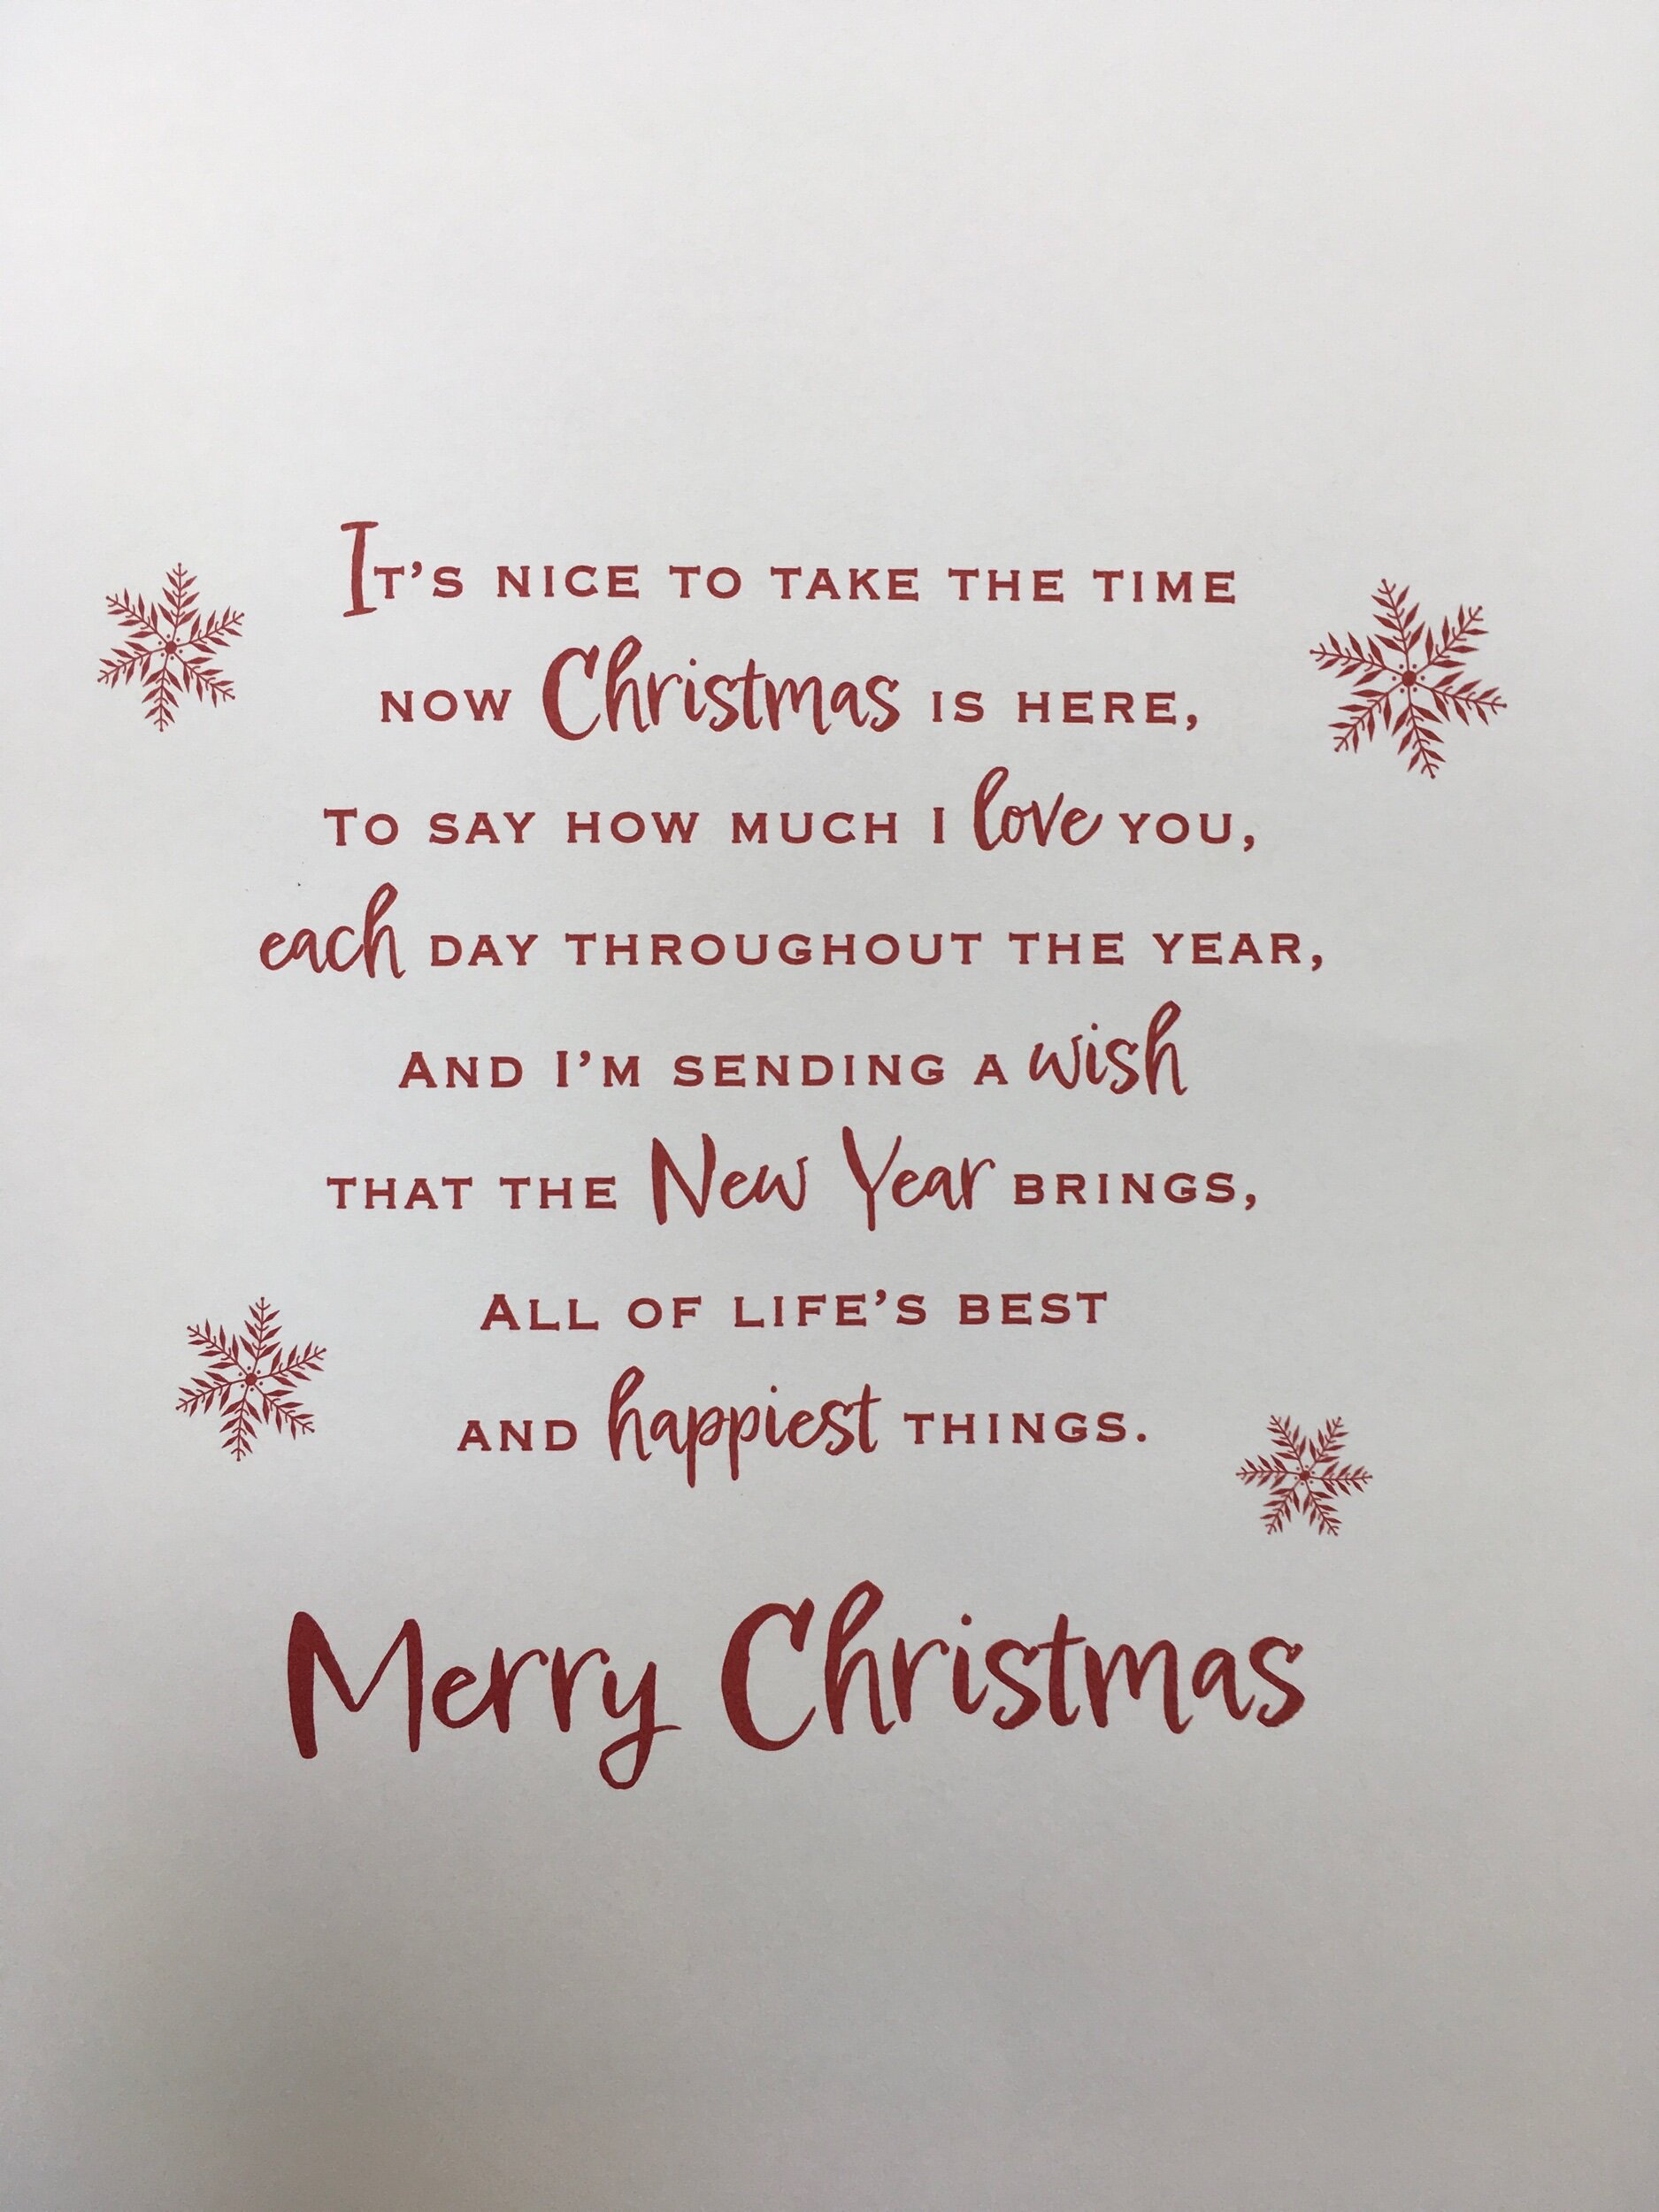 It's nice to take the time
now Christmas is here,
To say how much I love you,
each day throughout the year,
And I'm sending a wish
that the New Year brings,
All of life's best
and happiest things.
Merry Christmas